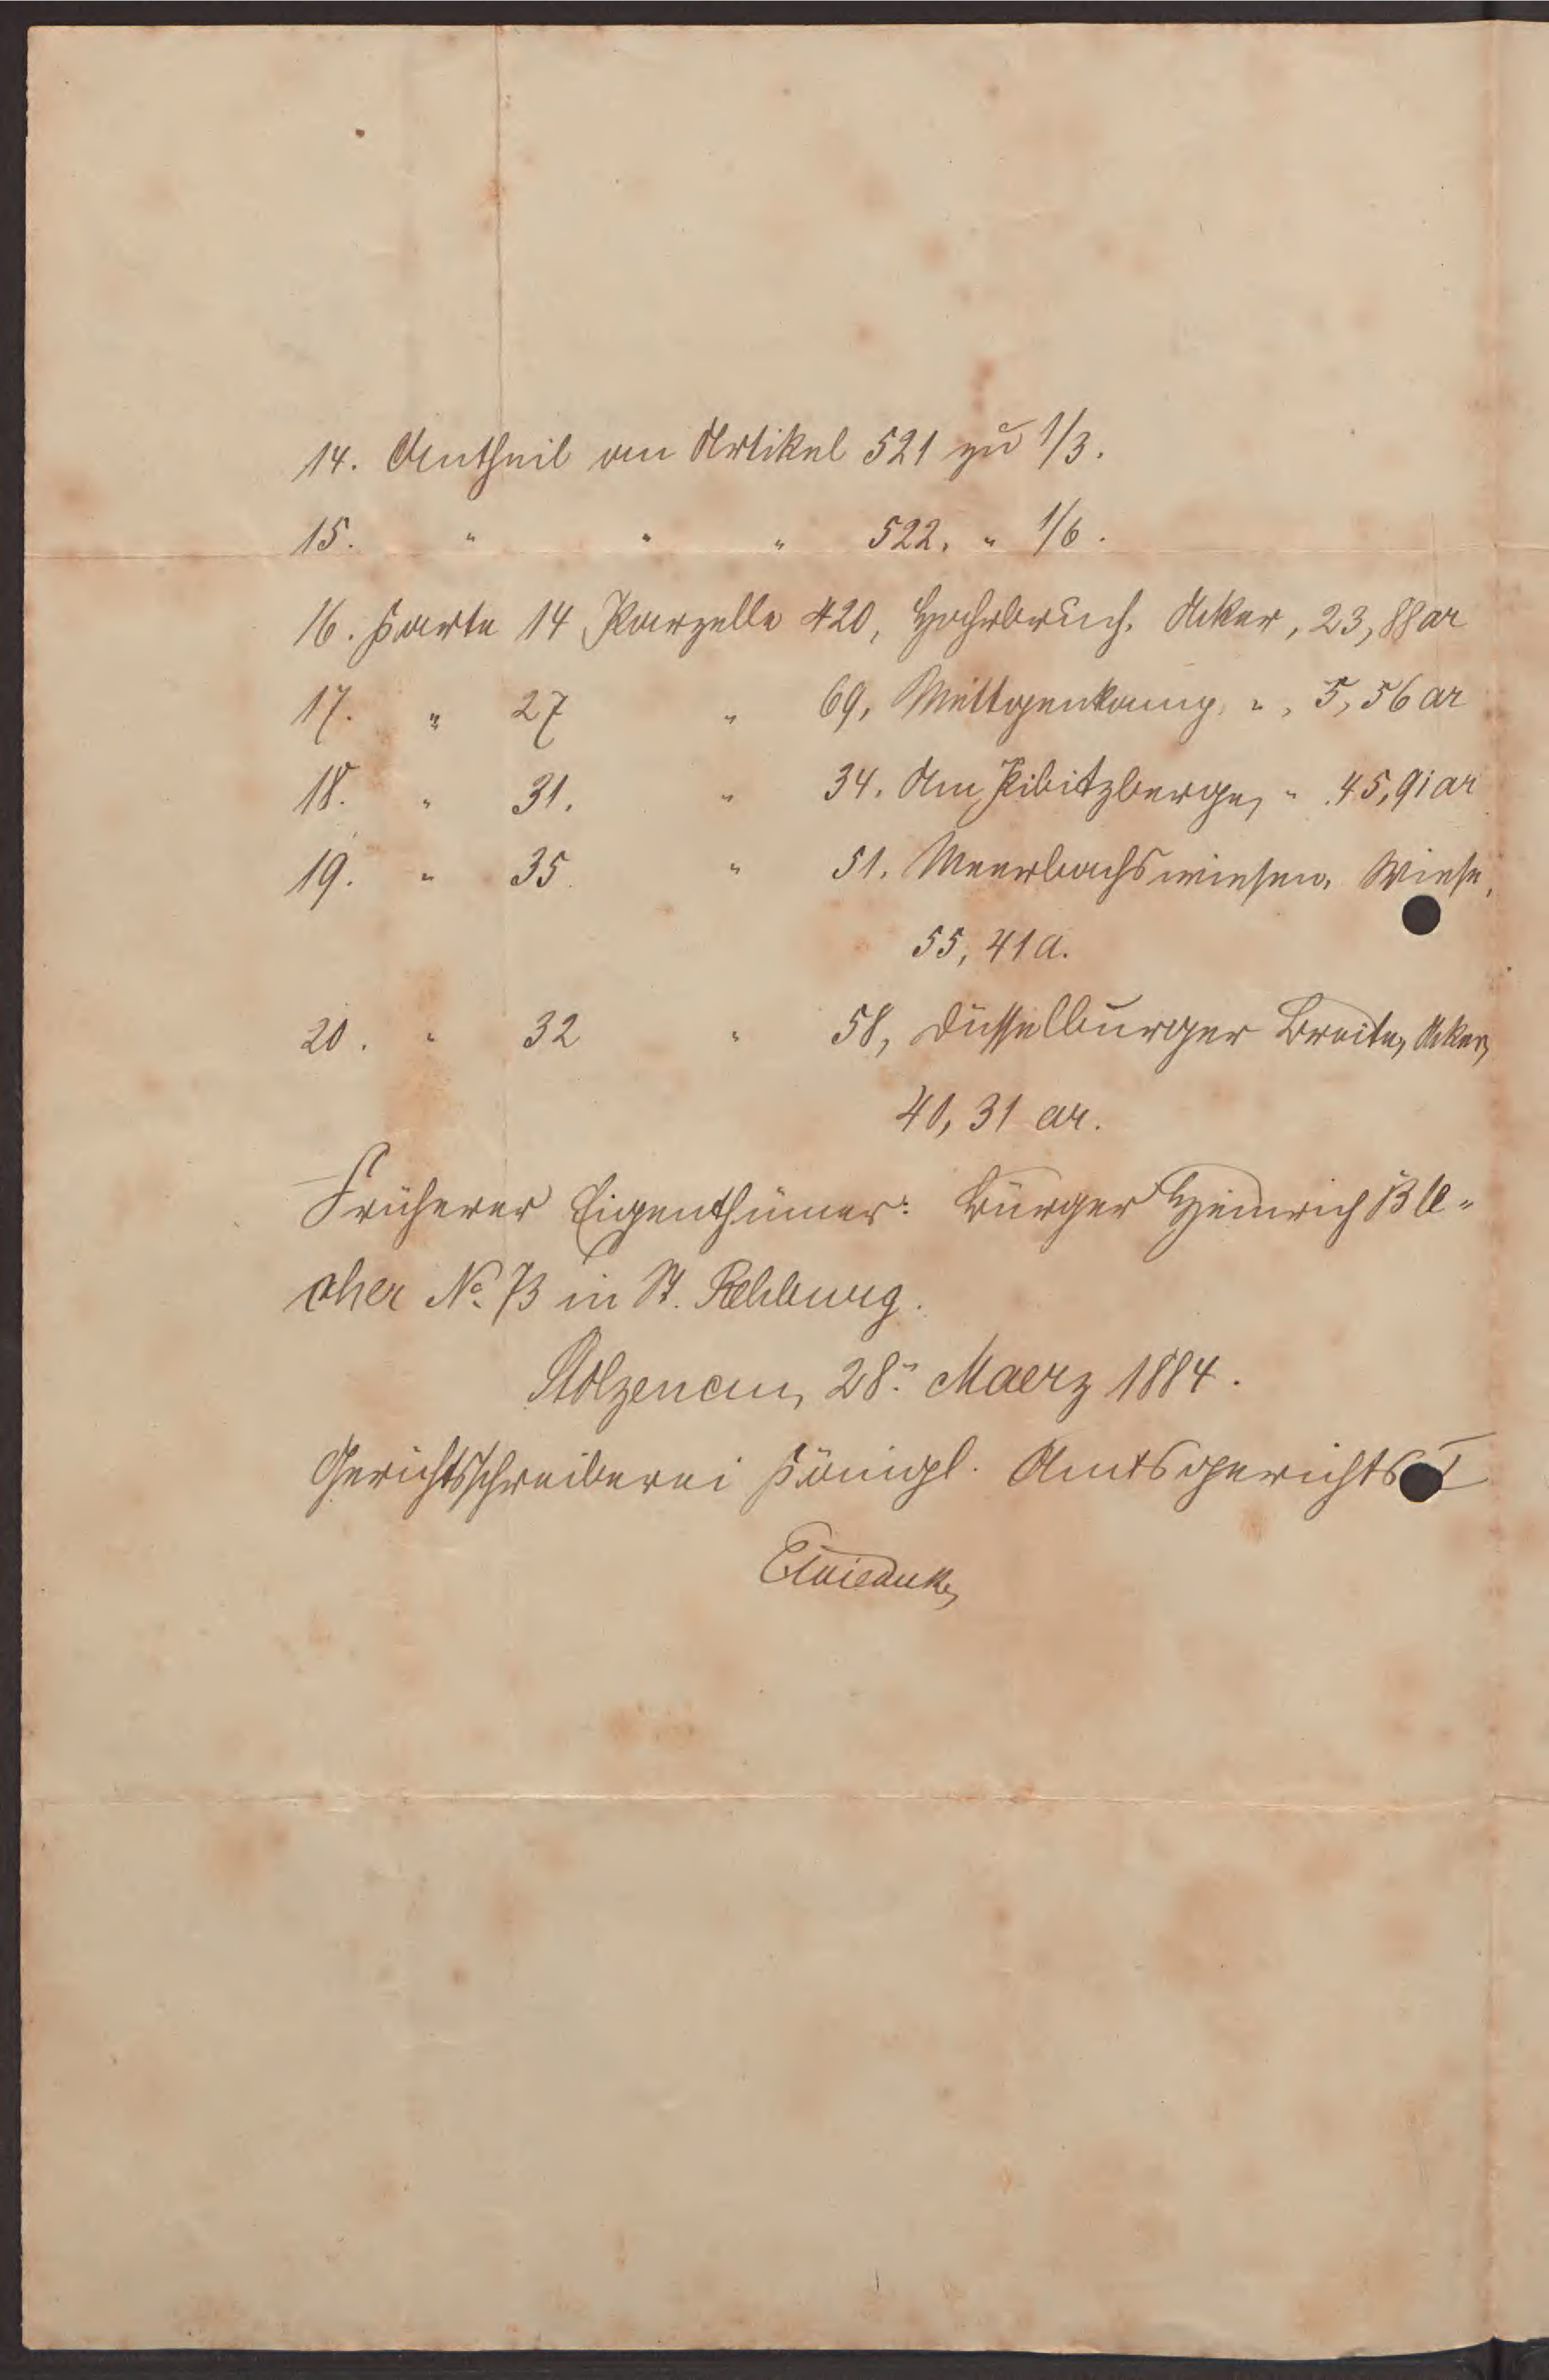 14. Antheil am Artikel 521 zu 1/3.
15. " " " 522. " 1/6.
16. Karte 14 Parzelle 420, Hohebruch, Acker, 23,88 ar
17. " 27 " 69, " , 5,56 ar
18. " 31. " 34. Am Kibitzberge, " 45,91 ar
19. " 35. " 51. Meerbachswiesen, Wiese,
55,41 a.
20. " 32 " 58, Düsselburger Breite, Acker,
40,31 ar.
Früherer Eigenthümer: Bürger Heinrich Ble-
cher No. 73 in St. Rehburg.
Stolzenau, 28. Maerz 1884.
Gerichtsschreiberei Königl. Amtsgerichts I